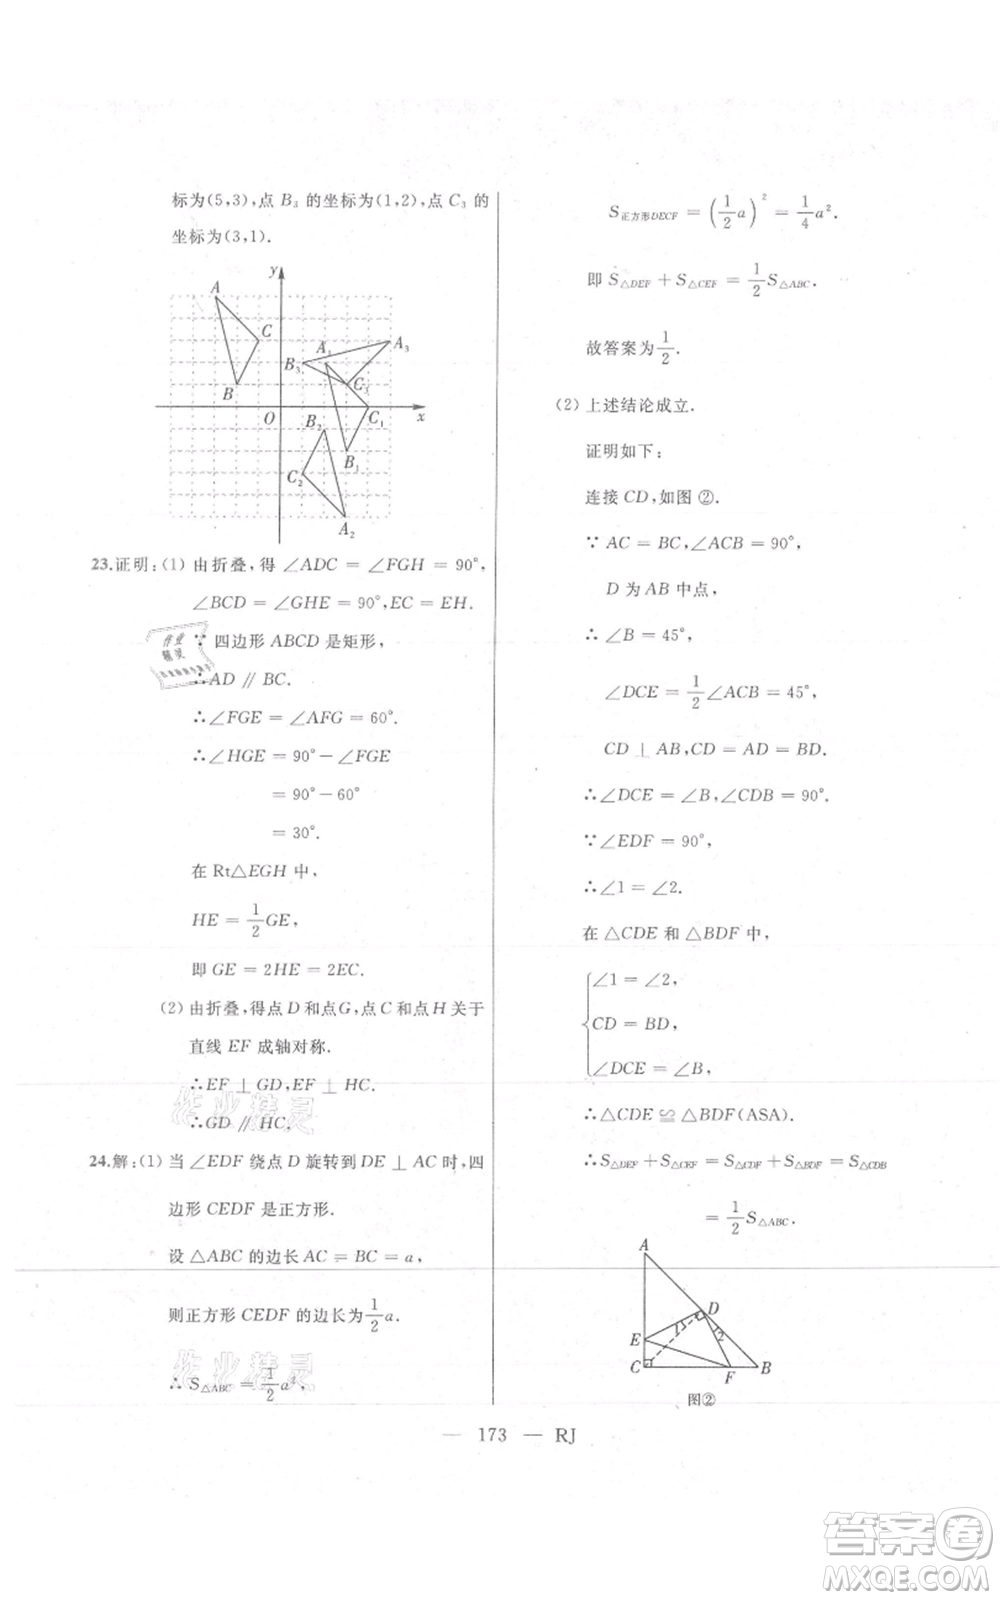 标为(5,3),点 B₃ 的坐标为(1,2),点 C₃ 的
坐标为(3,1).
y
A
C
A₁
A₃
B₃
C₃
B
O
B₂
C₁
x
B₁
C₂
A₂
23.证明:(1) 由折叠,得 ∠ADC = ∠FGH = 90°,
∠BCD = ∠GHE = 90°,EC = EH.
∵ 四边形 ABCD 是矩形,
∴AD ∥ BC.
∴∠FGE = ∠AFG = 60°.
∴∠HGE = 90° − ∠FGE
= 90° − 60°
= 30°.
在 Rt△EGH 中,
HE = 1/2 GE,
即 GE = 2HE = 2EC.
(2) 由折叠,得点 D 和点G,点 C 和点 H 关于
直线 EF 成轴对称.
∴EF ⊥ GD,EF ⊥ HC.
∴GD ∥ HC.
24.解:(1) 当 ∠EDF 绕点 D 旋转到 DE ⊥ AC 时,四
边形 CEDF 是正方形.
设 △ABC 的边长 AC = BC = a,
则正方形 CEDF 的边长为 1/2 a.
∴ S△ABC = 1/2 a²,
S正方形DECF = (1/2 a)² = 1/4 a².
即 S△DEF + S△CEF = 1/2 S△ABC.
故答案为 1/2.
(2) 上述结论成立.
证明如下:
连接 CD,如图 ②.
∵ AC = BC,∠ACB = 90°,
D 为 AB 中点,
∴ ∠B = 45°,
∠DCE = 1/2 ∠ACB = 45°,
CD ⊥ AB,CD = AD = BD.
∴∠DCE = ∠B,∠CDB = 90°.
∵∠EDF = 90°,
∴∠1 = ∠2.
在 △CDE 和 △BDF 中,
∠1 = ∠2,
CD = BD,
∠DCE = ∠B,
∴△CDE ≌ △BDF(ASA).
∴S△DEF + S△CEF = S△CDE + S△BDF = S△CDB
= 1/2 S△ABC.
A
D
1
2
E
C
F
B
图②
— 173 — RJ
作业
精灵
作业精灵
作业精灵
答案卷
MXQE.COM